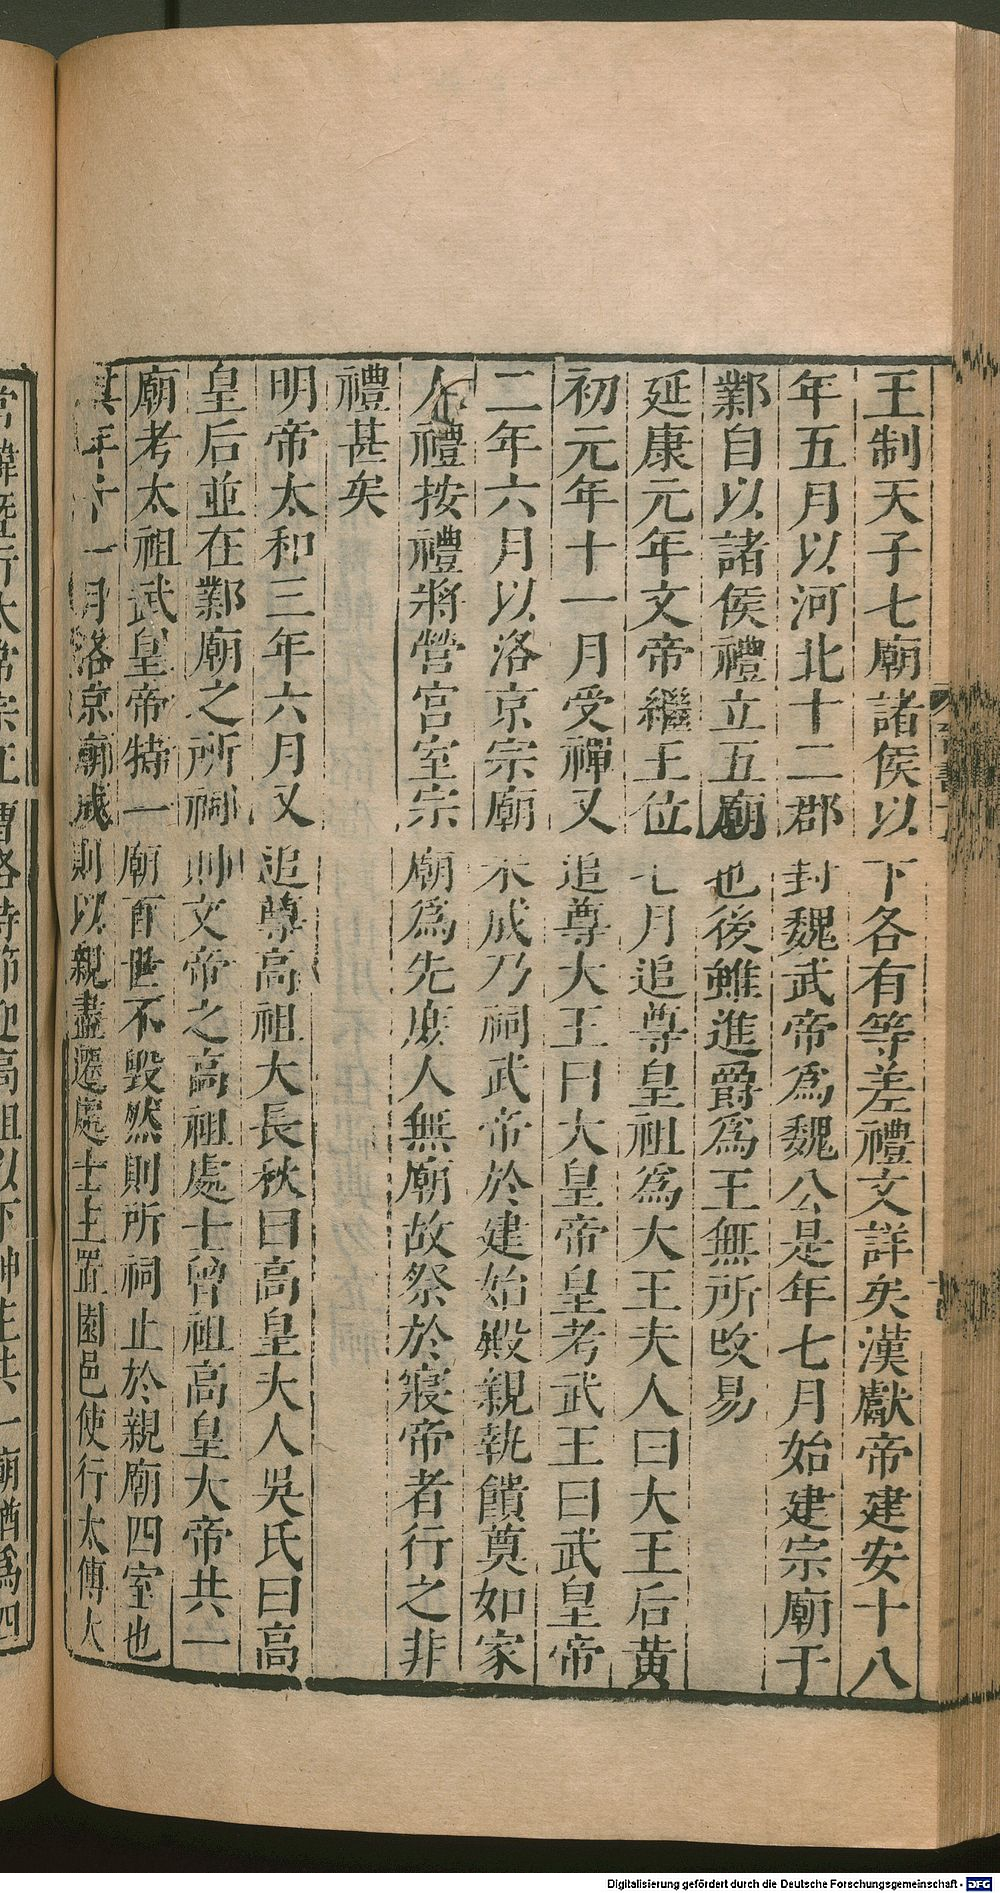 王制天子七廟諸侯以下各有等差禮文詳矣漢獻帝建安十八
年五月以河北十二郡封魏武帝爲魏公是年七月始建宗廟于
鄴自以諸侯禮立五廟也後雖進爵爲王無所改易
延康元年文帝繼王位七月追尊皇祖爲大王夫人曰大王后黄
初元年十一月受禪又追尊大王曰大皇帝皇考武王曰武皇帝
二年六月以洛京宗廟未成乃祠武帝於建始殿親執饋奠如家
人禮按禮將營宫室宗廟爲先庶人無廟故祭於寢帝者行之非
禮甚矣
明帝太和三年六月又追尊高祖大長秋曰高皇夫人吳氏曰高
皇后並在鄴廟之所祠則文帝之高祖處士曾祖高皇大帝共一
廟考太祖武皇帝特一廟百世不毀然則所祠止於親廟四室也
其年十一月洛京廟成則以親盡遷處士主置園邑使行太傅大
常韓暨行太常宗正曹恪持節迎高祖以下神主共一廟猶爲四
Digitalisierung gefördert durch die Deutsche Forschungsgemeinschaft - DFG